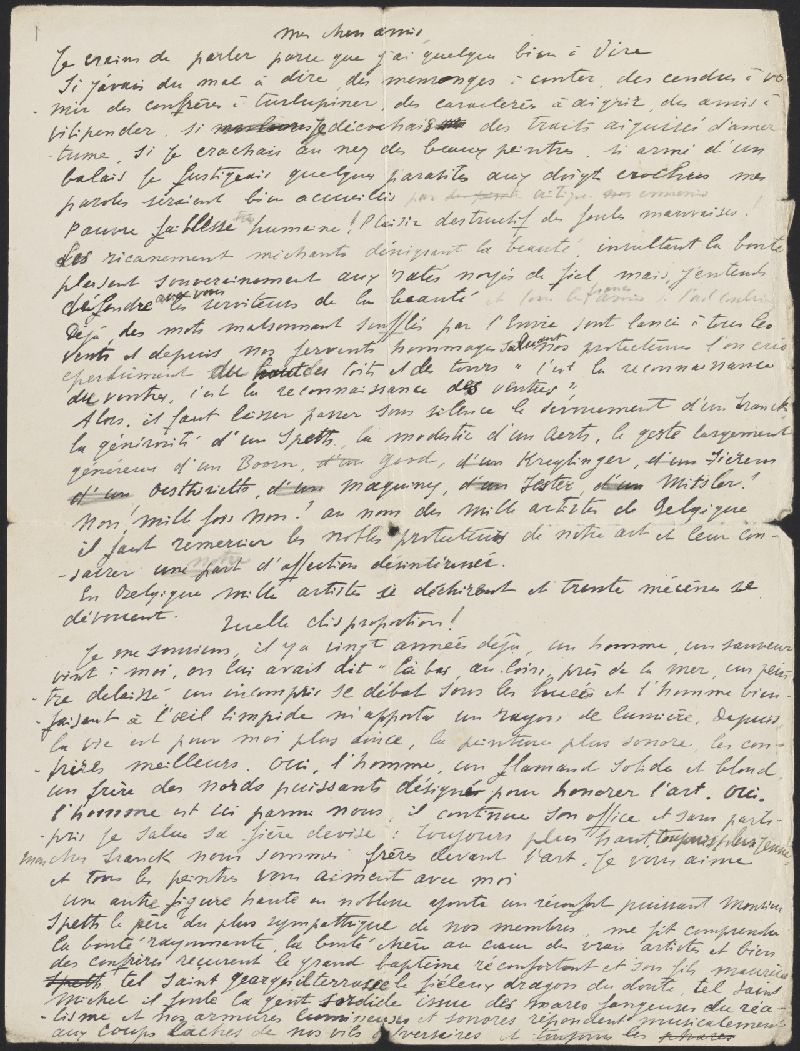 mes chers amis,
Je crains de parler parce que j'ai quelque bien à dire
Si j'avais du mal à dire, des mensonges à conter, des cendres à vo-
mir des confrères à turlupiner, des caractères à aigrir, des amis à
vilipender, si je décochais des traits aiguisés d'amer
tume, si je crachais au nez des beaux peintres, si armé d'un
balais je fustigeais quelques parasites aux doigts crochus mes
paroles seraient bien accueillies
Pauvre faiblesse humaine! Plaisir destructif des foules mauvaises!
Les ricanement méchants dénigrant la beauté, insultant la bonté
plaisent souverainement aux ratés noyés de fiel mais, j'entends
défendre avec vous les serviteurs de la beauté et tous les
Déjà, des mots malsonnant soufflés par l'Envie sont lancés à tous les
vents et depuis nos fervents hommages saluant nos protecteurs l'on crie
éperdument du haut des toits et de tours "c'est la reconnaissance
du ventre, c'est la reconnaissance des ventres"
Alors, il faut laisser passer sous silence le dévouement d'un Franck
la générosité d'un Speth, la modestie d'un Aerts, le geste largement
généreux d'un Boorn, d'un Good, d'un Kreglinger, d'un Fierens
d'un Osterrieth, d'un Maquinay, d'un Lester, d'un Mitsler!
Non! mille fois Non! au nom des mille artistes de Belgique
il faut remercier les nobles protecteurs de notre art et leur con-
-sacrer une part d'affection désintéressée.
En Belgique mille artistes se déchirent et trente mécènes se
dévouent. Quelle disproportion!
Je me souviens, il y a vingt années déjà, un homme, un sauveur
vint à moi, on lui avait dit "là bas, au loin, près de la mer, un pein-
tre délaissé un incompris se débat sous les huées et l'homme bien-
-faisant à l'œil limpide m'apporta un rayon de lumière. Depuis
la vie est pour moi plus douce, la peinture plus sonore, les con-
-frères meilleurs. Oui, l'homme, un flamand solide et blond
un frère des nords puissants désigné pour honorer l'art. Oui.
l'homme est ici parmi nous, il continue son office et sans parti-
-pris je salue sa fière devise: toujours plus haut, toujours plus jeune
mon cher Franck nous sommes frères devant l'art. Je vous aime
et tous les peintres vous aiment avec moi
Une autre figure haute en noblesse ajouta un réconfort puissant Monsieur
Speth le père du plus sympathique de nos membres, me fit comprendre
la bonté rayonnante, la bonté chère au cœur des vrais artistes et bien
des confrères reçurent le grand baptême réconfortant et son fils maurice
Speth tel saint georges il terrasse le fielleux dragon du doute, tel saint
Michel il foule la gent sordide issue des mares fangeuses du réa-
-lisme et nos armures lumineuses et sonores répondent musicalement
aux coups lâches de nos vils adversaires et toujours les phares